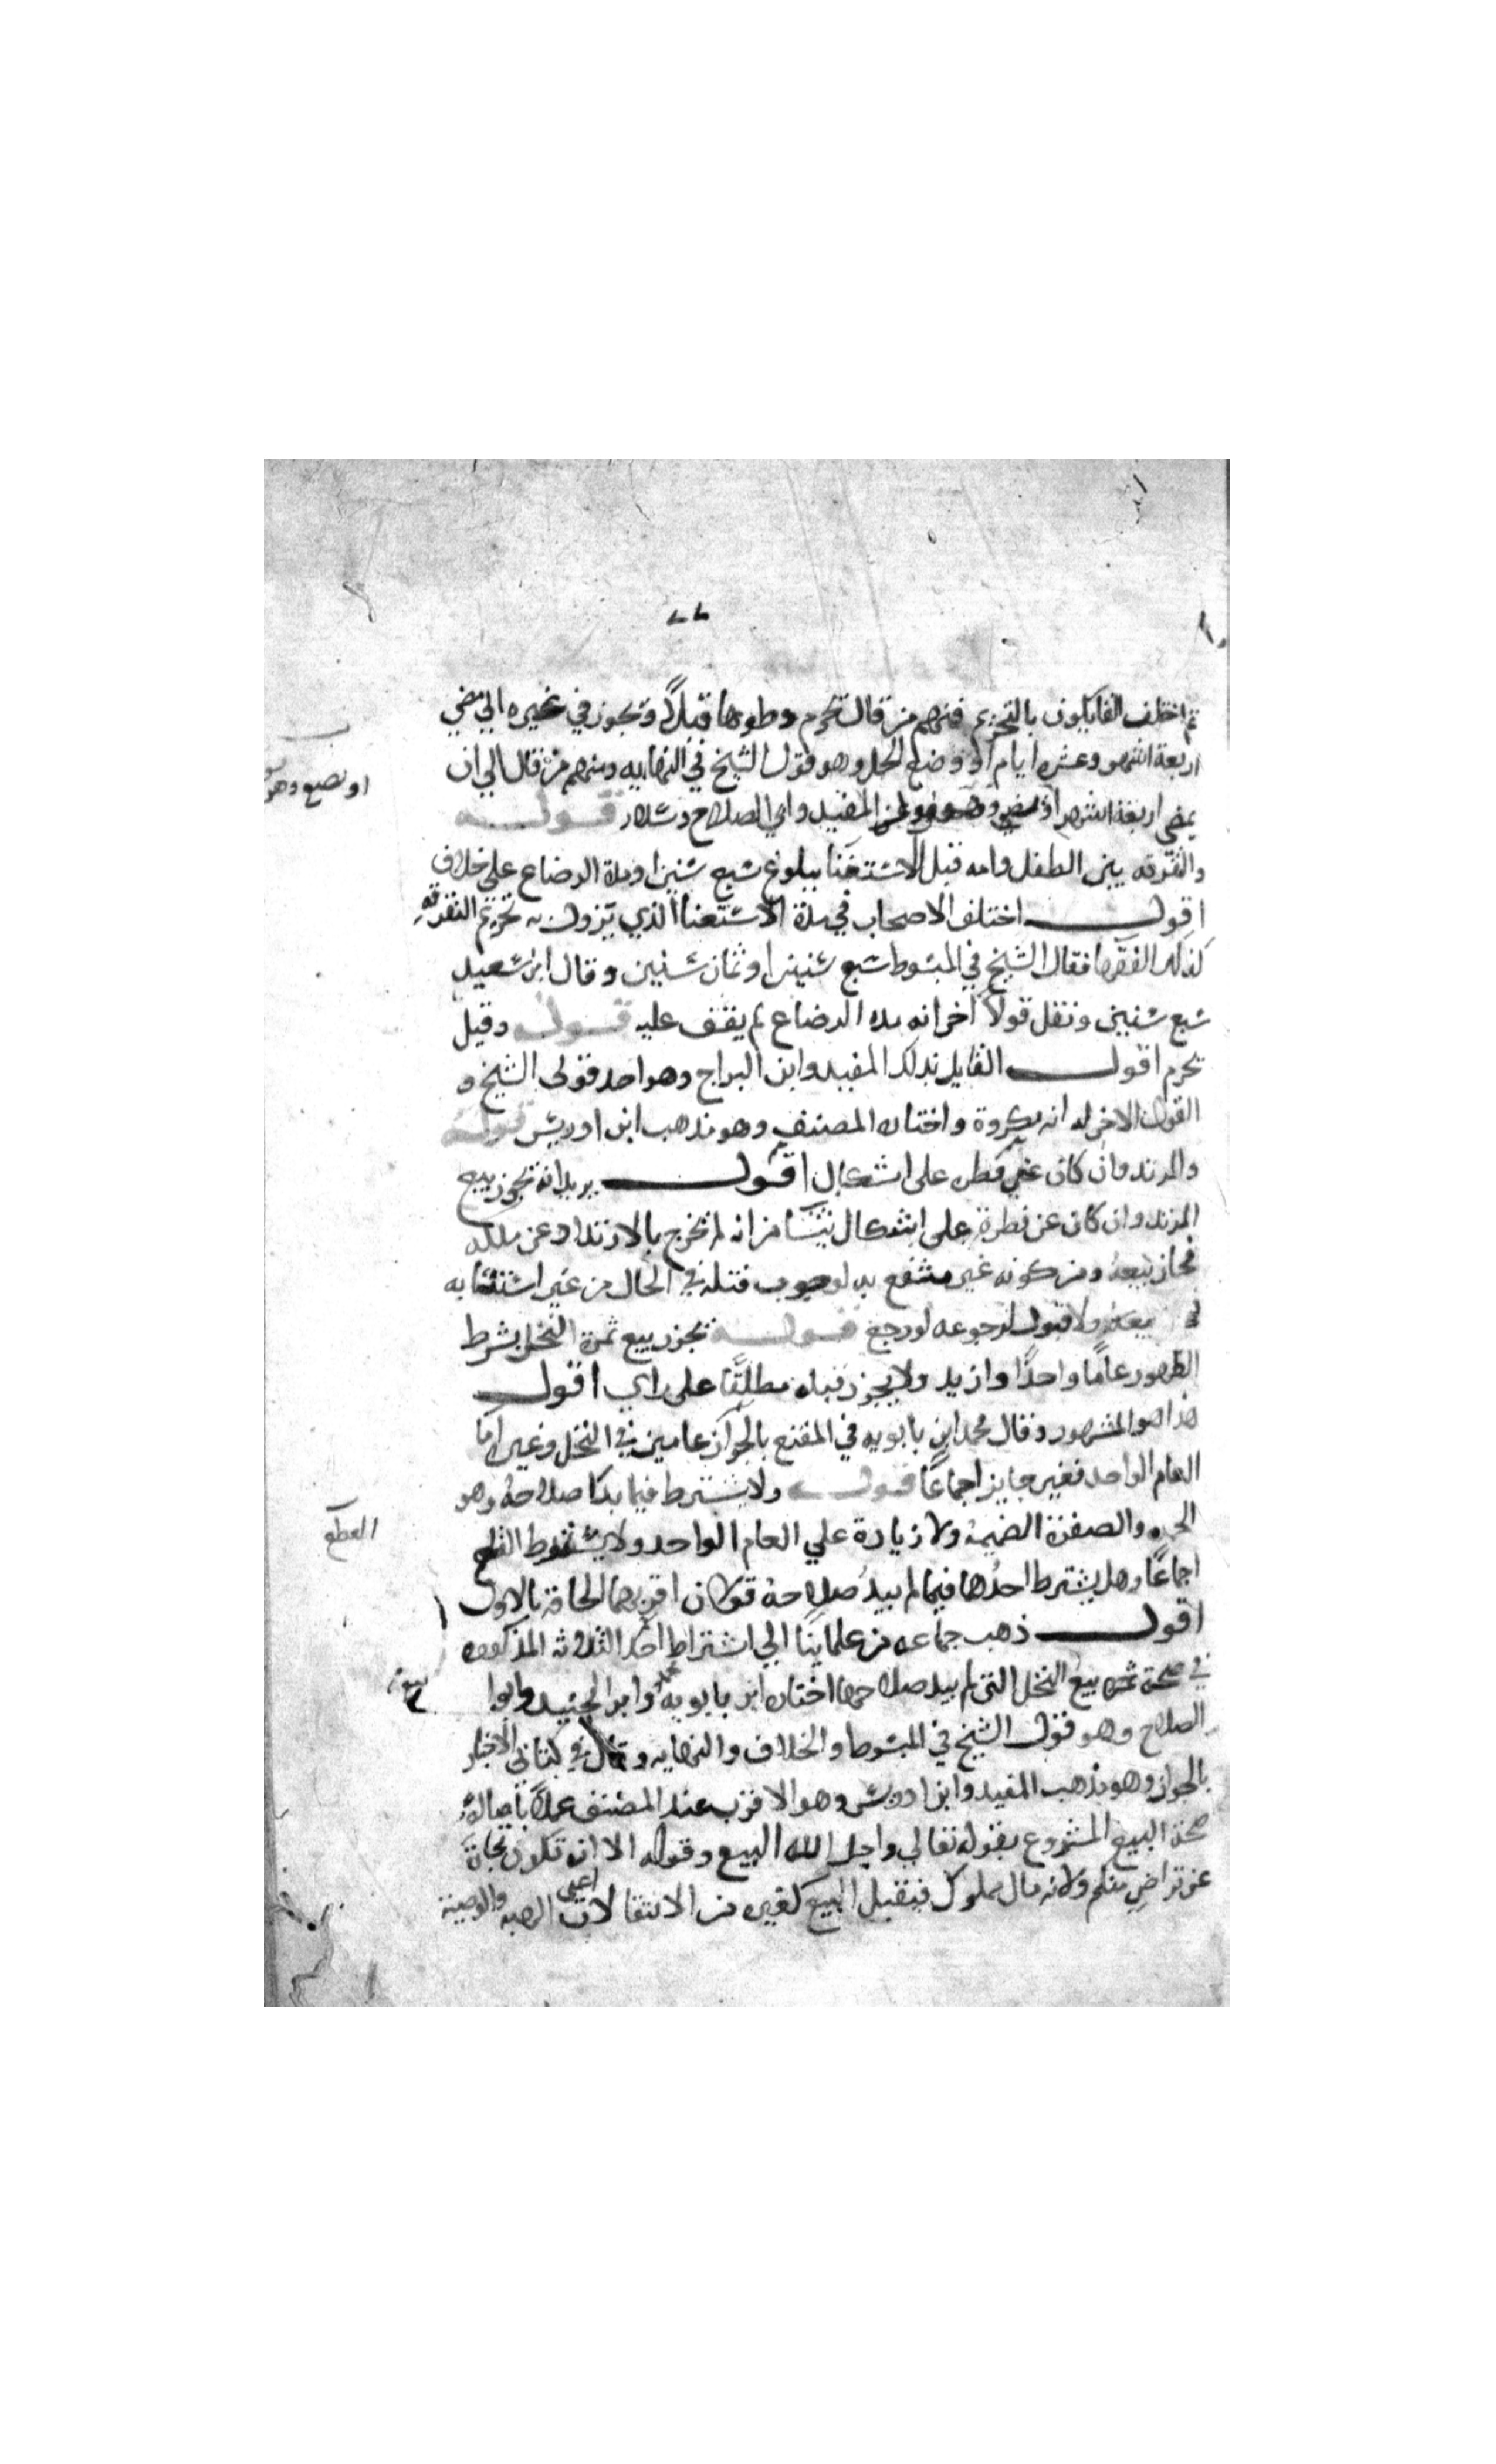 ثم اختلف القايلون بالتحريم فمنهم من قال تحرم وطوها قبلاً ويجوز في غيره الي مضي
اربعة اشهر وعشره ايام او وضع الحمل وهو قول الشيخ في النهايه ومنهم من قال الي ان
او تضع وهو
يمضي اربعة اشهر المفيد وابي الصلاح وسلار قوله
والتفرقه بين الطفل وامه قبل الاستغنا ببلوغ سبع سنين او مدة الرضاع علي خلاف
اقول اختلف الاصحاب في مدة الاستغنا الذي يزول به تحريم التفرقه
الفقها فقال الشيخ في المبسوط سبع سنين او ثمان سنين وقال ابن سعيد
سبع سنين ونقل قولاً اخر انه مده الرضاع لم يقف عليه قوله وقيل
يحرم اقول القايل بذلك المفيد وابن البراج وهو احد قولي الشيخ و
القول الاخر له انه مكروة واختاره المصنف وهو مذهب ابن ادريس قوله
والمرتد وان كان عن فطره على اشكال اقول يريد انه يجوز بيع
المرتد وان كان عن فطرة على اشكال ينشا من انه لم يخرج بالارتداد عن ملكه
فجاز بيعه ومن كونه غير منتفع به لوجوب قتله في الحال من غير استتابه
ولا قبول لرجوعه لو رجع قوله يجوز بيع ثمرة النخل بشرط
الظهور عامًا واحدًا وازيد ولا يجوز قبله مطلقًا على راي اقول
هذا هو المشهور وقال محمد ابن بابويه في المقنع بالجواز عامين في النخل وغيره اما
العام الواحد فغير جايز اجماعًا قوله ولا يشترط فيما بدا صلاحه وهو
الحمره والصفرة الضميمة ولا زيادة علي العام الواحد ولا يشترط
القطع
اجماعًا وهل يشترط احدها فيما لم يبد صلاحه قولان اقربهما الحاقه بالاول
اقول ذهب جماعه من علماينا الي اشتراط احد الثلاثه المذكوره
في صحة بيع النخل التي لم يبد صلاحها اختاره ابن بابويه وابن الجنيد وابوا
الصلاح وهو قول الشيخ في المبسوط والخلاف والنهايه وقال في كتابي الاخبار
بالجواز وهو مذهب المفيد وابن ادريس وهو الاقرب عند المصنف عملاً باصالة
صحة البيع المشروع بقوله تعالي واحل الله البيع وقوله الا ان تكون تجارة
عن تراضٍ منكم ولانه مال مملوك فيقبل البيع كغيره من الانتقالات اعني الهبه والوصية